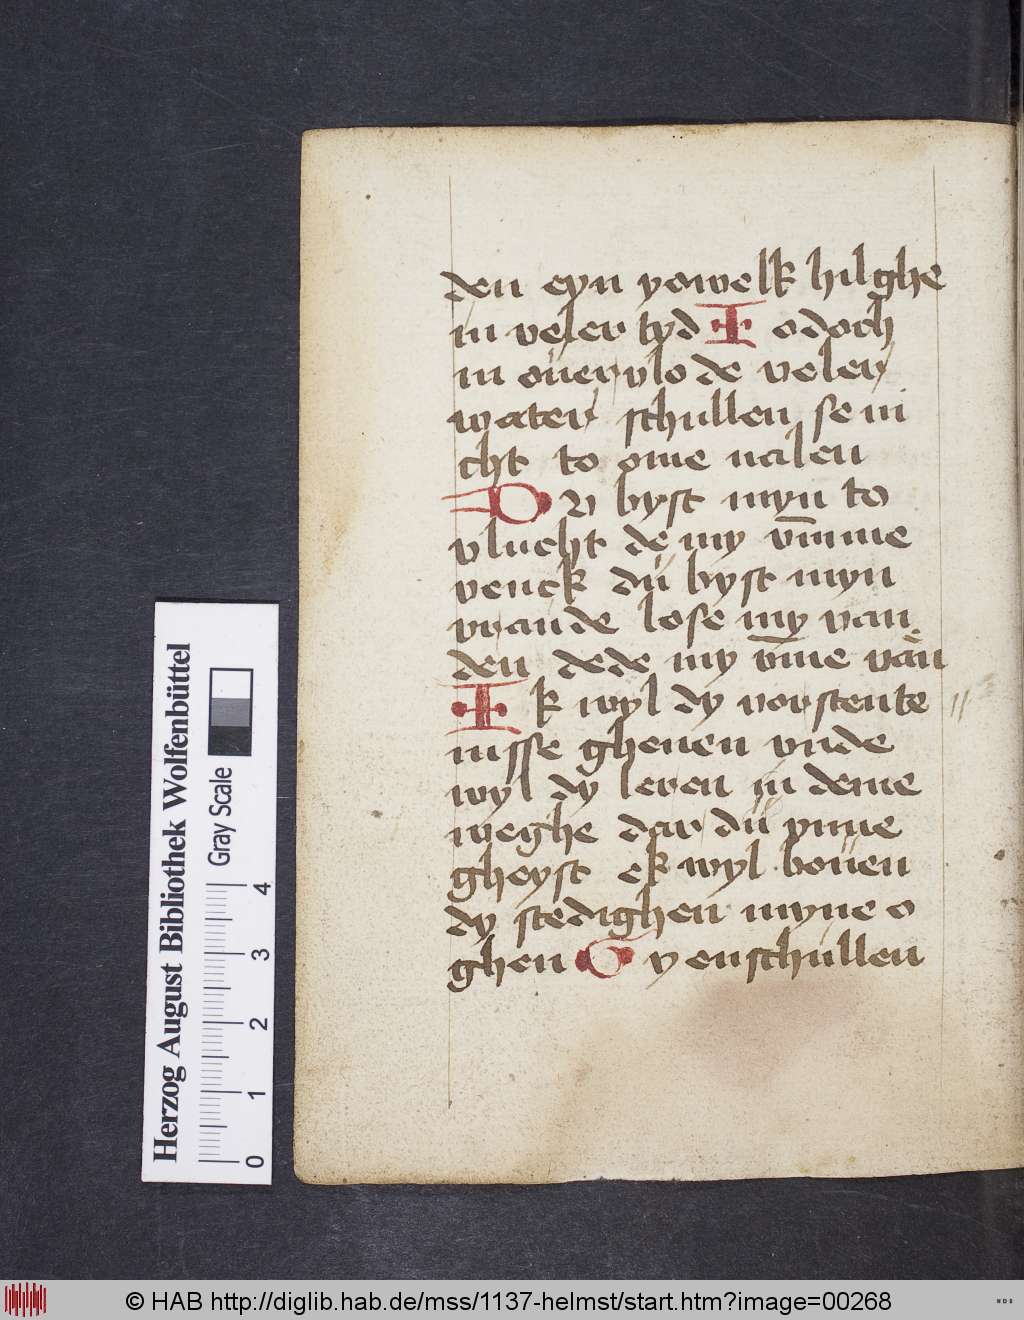 den eyn yowelk hilghe
in veler tyd I odoch
in ouervlo de veler
water schullen se ni
cht to ome nalen
Du byst myn to
vlucht de my vm̅me
venck dü byst myn
vrande lose my van
den dede my vm̅e van
Ik wyl dy vorstente
nisse gheuen vnde
wyl dy leren in deme
weghe dar dü ynne
gheyst ek wyl boüen
dy stedighen myne o
ghen Gy enschullen
Herzog August Bibliothek Wolfenbüttel
Gray Scale
0 1 2 3 4
© HAB http://diglib.hab.de/mss/1137-helmst/start.htm?image=00268